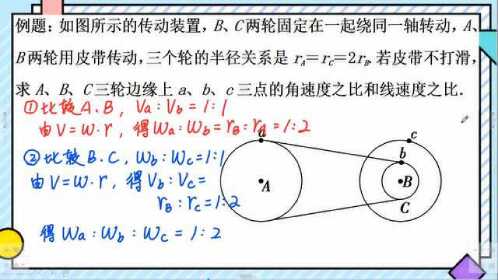 例题：如图所示的传动装置，B、C两轮固定在一起绕同一轴转动，A、
B两轮用皮带传动，三个轮的半径关系是 r_A=r_C=2r_B. 若皮带不打滑，
求 A、B、C三轮边缘上 a、b、c 三点的角速度之比和线速度之比.
①比较A.B, Va:Vb=1:1
由V=W·r，得Wa:Wb=rB:rA=1:2
②比较B.C, Wb:Wc=1:1
由V=W·r, 得Vb:Vc=
rB:rC=1:2
得Wa:Wb:Wc=1:2
a
A
c
b
B
C